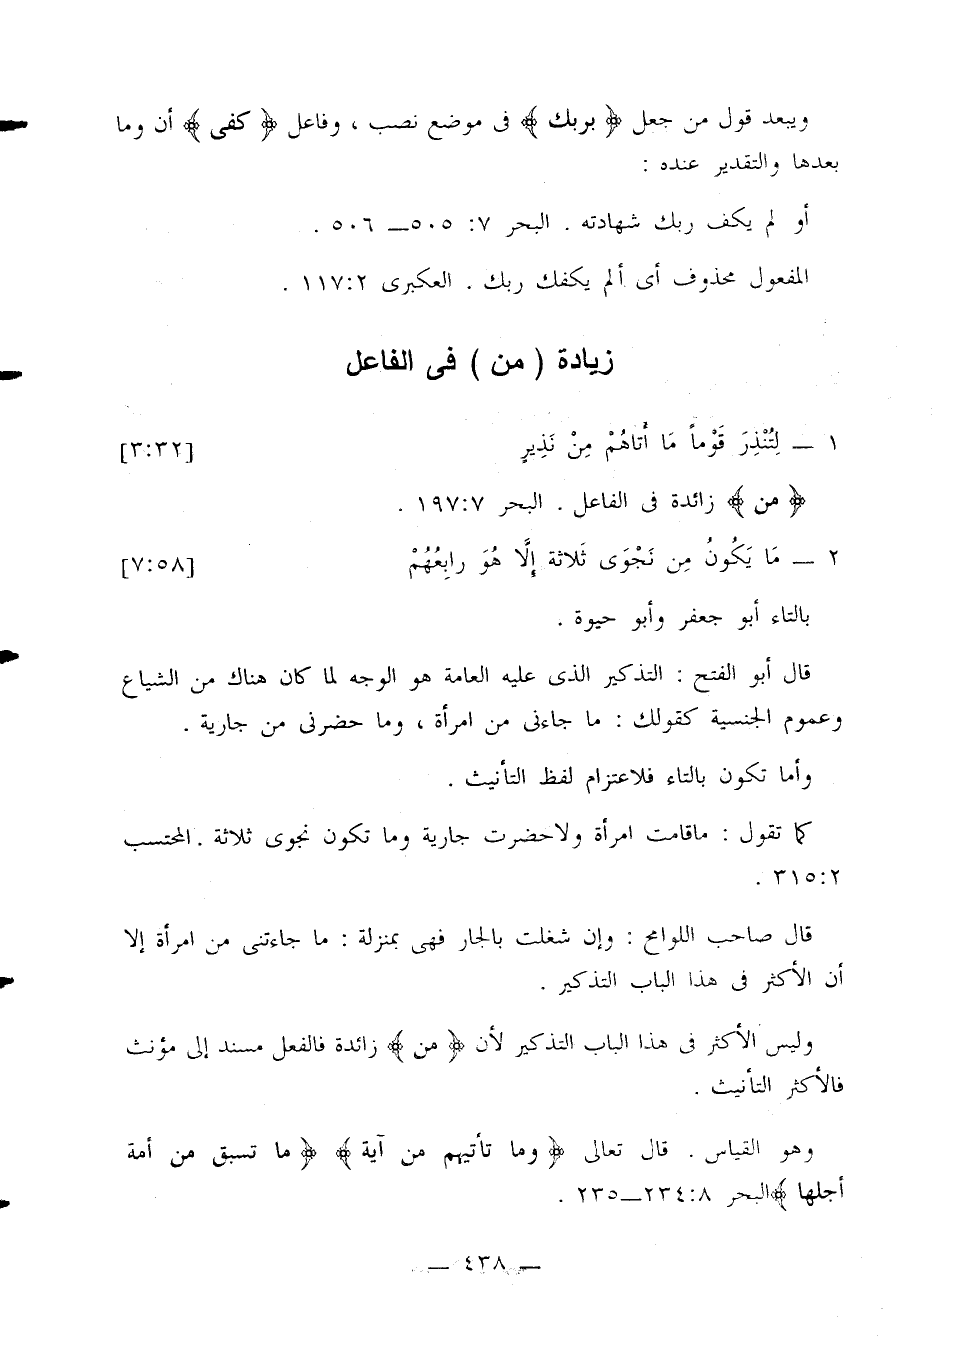 ويبعد قول من جعل ﴿ بربك ﴾ فى موضع نصب ، وفاعل ﴿ كفى ﴾ أن وما
بعدها والتقدير عنده :
أو لم يكف ربك شهادته . البحر ٧: ٥٠٥ــ ٥٠٦ .
المفعول محذوف أى ألم يكفك ربك . العكبرى ١١٧:٢ .
زيادة ( من ) فى الفاعل
١ ــ لِتُنْذِرَ قَوْماً مَا أَتاهُمْ مِنْ نَذِيرٍ [٣:٣٢]
﴿ من ﴾ زائدة فى الفاعل . البحر ١٩٧:٧ .
٢ ــ مَا يَكُونُ مِن نَجْوَى ثَلاثة إِلَّا هُوَ رابِعُهُمْ [٧:٥٨]
بالتاء أبو جعفر وأبو حيوة .
قال أبو الفتح : التذكير الذى عليه العامة هو الوجه لما كان هناك من الشياع
وعموم الجنسية كقولك : ما جاءنى من امرأة ، وما حضرنى من جارية .
وأما تكون بالتاء فلاعتزام لفظ التأنيث .
كما تقول : ماقامت امرأة ولاحضرت جارية وما تكون نجوى ثلاثة . المحتسب
٣١٥:٢ .
قال صاحب اللوامح : وإن شغلت بالجار فهى بمنزلة : ما جاءتنى من امرأة إلا
أن الأكثر فى هذا الباب التذكير .
وليس الأكثر فى هذا الباب التذكير لأن ﴿ من ﴾ زائدة فالفعل مسند إلى مؤنث
فالأكثر التأنيث .
وهو القياس . قال تعالى ﴿ وما تأتيهم من آية ﴾ ﴿ ما تسبق من أمة
أجلها ﴾البحر ٢٣٤:٨ــ٢٣٥ .
ــ ٤٣٨ ــ